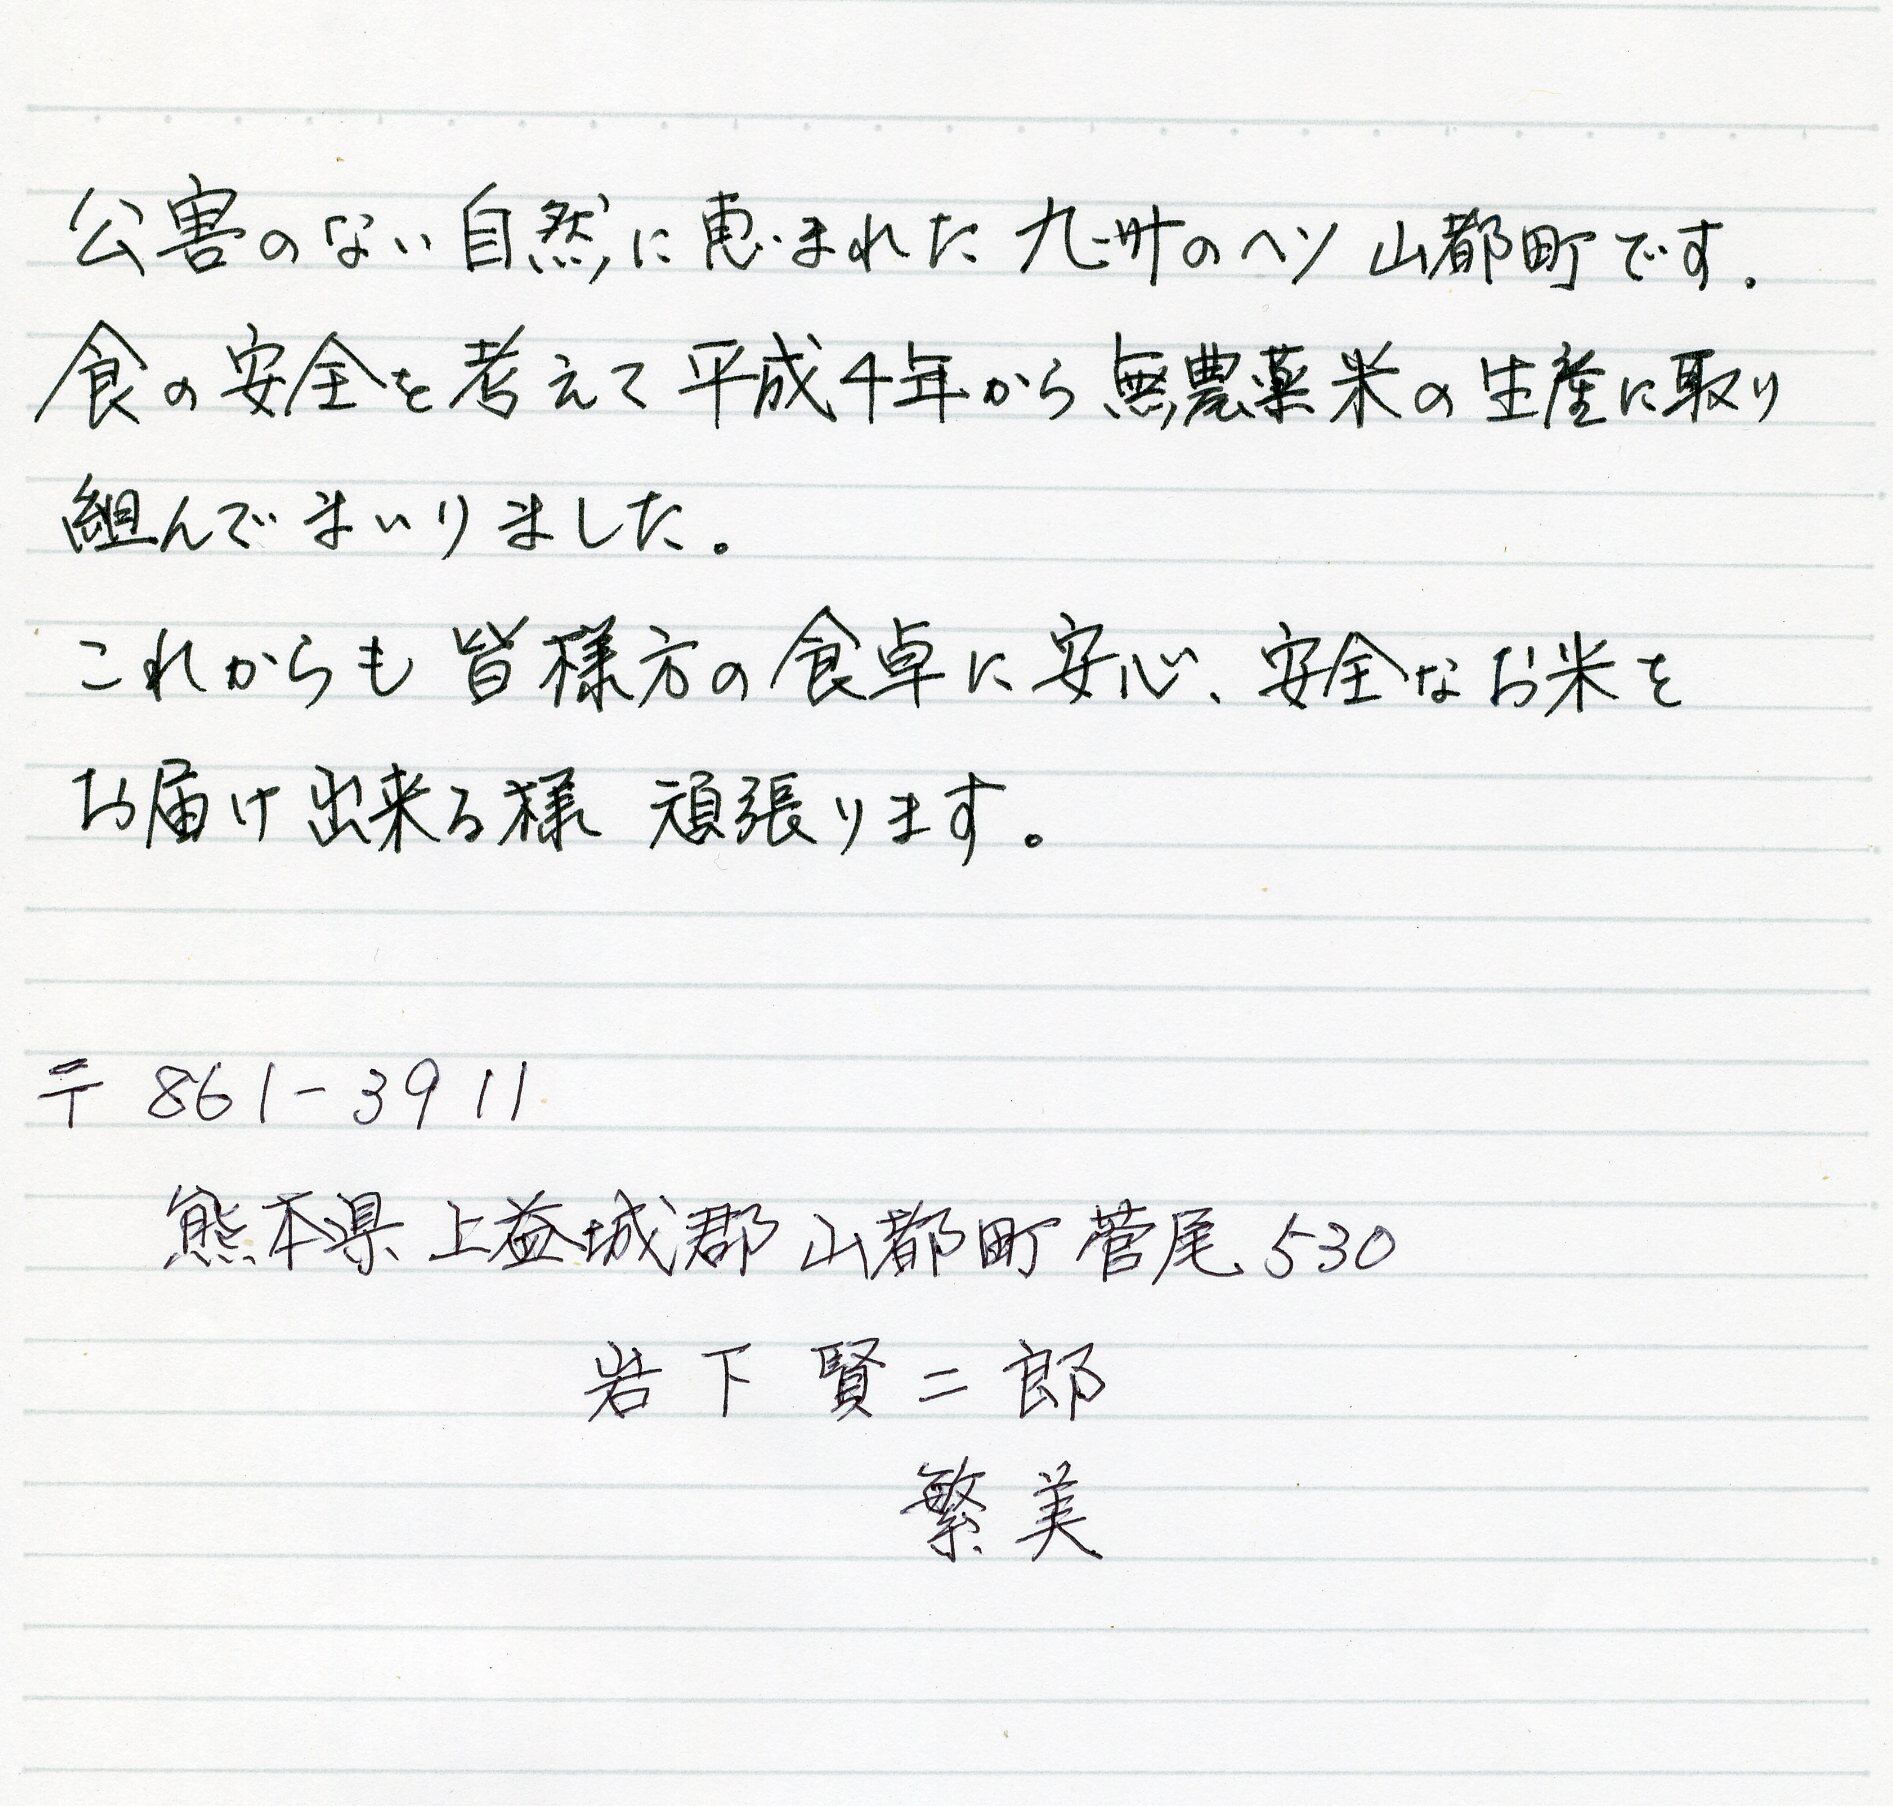 公害のない自然に恵まれた九州のヘソ山都町です.
食の安全を考えて平成4年から無農薬米の生産に取り
組んでまいりました。
これからも皆様方の食卓に安心、安全なお米を
お届け出来る様 頑張ります。
〒 861-3911
熊本県上益城郡山都町菅尾530
岩下賢二郎
繁美